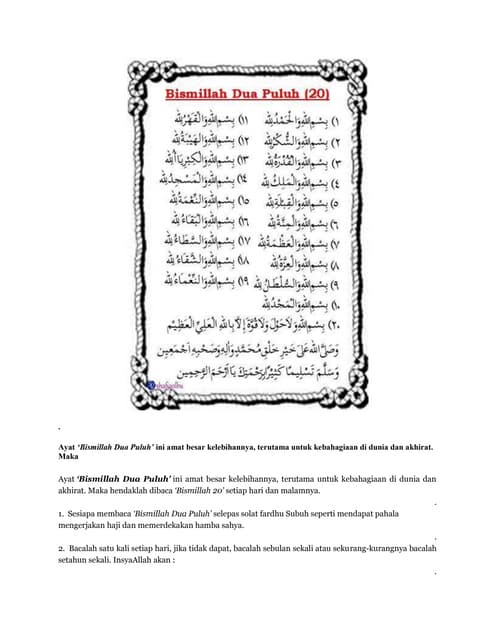 Bismillah Dua Puluh (20)
١) بِسْمِ اللهِ وَالْحَمْدُ لِلّٰهِ
١١) بِسْمِ اللهِ وَالْقَهْرُ لِلّٰهِ
٢) بِسْمِ اللهِ وَالشُّكْرُ لِلّٰهِ
١٢) بِسْمِ اللهِ وَالْهَيْبَةُ لِلّٰهِ
٣) بِسْمِ اللهِ وَالْقُدْرَةُ لِلّٰهِ
١٣) بِسْمِ اللهِ وَالْكِبْرِيَاءُ لِلّٰهِ
٤) بِسْمِ اللهِ وَالْمَلِكُ لِلّٰهِ
١٤) بِسْمِ اللهِ وَالْمَسْجِدُ لِلّٰهِ
٥) بِسْمِ اللهِ وَالْقِبْلَةُ لِلّٰهِ
١٥) بِسْمِ اللهِ وَالنِّعْمَةُ لِلّٰهِ
٦) بِسْمِ اللهِ وَالْمِنَّةُ لِلّٰهِ
١٦) بِسْمِ اللهِ وَالْبَقَاءُ لِلّٰهِ
٧) بِسْمِ اللهِ وَالْعَظَمَةُ لِلّٰهِ
١٧) بِسْمِ اللهِ وَالسَّطَاءُ لِلّٰهِ
٨) بِسْمِ اللهِ وَالْعِزَّةُ لِلّٰهِ
١٨) بِسْمِ اللهِ وَالشَّفَاءُ لِلّٰهِ
٩) بِسْمِ اللهِ وَالسُّلْطَانُ لِلّٰهِ
١٩) بِسْمِ اللهِ وَالنَّعْمَاءُ لِلّٰهِ
١٠) بِسْمِ اللهِ وَالْمَجْدُ لِلّٰهِ
٢٠) بِسْمِ اللهِ وَلَاحَوْلَ وَلَا قُوَّةَ إِلَّا بِاللهِ الْعَلِيِّ الْعَظِيْمِ
وَصَلَّى اللهُ عَلَى خَيْرِ خَلْقِ مُحَمَّدٍ وَآلِهِ وَصَحْبِهِ اَجْمَعِيْنَ
وَسَلَّمَ تَسْلِيمًا كَثِيْرًا بِرَحْمَتِكَ يَا اَرْحَمَ الرَّحِمِيْنَ
shafiqolbu
.
Ayat ‘Bismillah Dua Puluh’ ini amat besar kelebihannya, terutama untuk kebahagiaan di dunia dan akhirat.
Maka
Ayat ‘Bismillah Dua Puluh’ ini amat besar kelebihannya, terutama untuk kebahagiaan di dunia dan
akhirat. Maka hendaklah dibaca ‘Bismillah 20’ setiap hari dan malamnya.
.
1. Sesiapa membaca ‘Bismillah Dua Puluh’ selepas solat fardhu Subuh seperti mendapat pahala
mengerjakan haji dan memerdekakan hamba sahya.
.
2. Bacalah satu kali setiap hari, jika tidak dapat, bacalah sebulan sekali atau sekurang-kurangnya bacalah
setahun sekali. InsyaAllah akan :
.